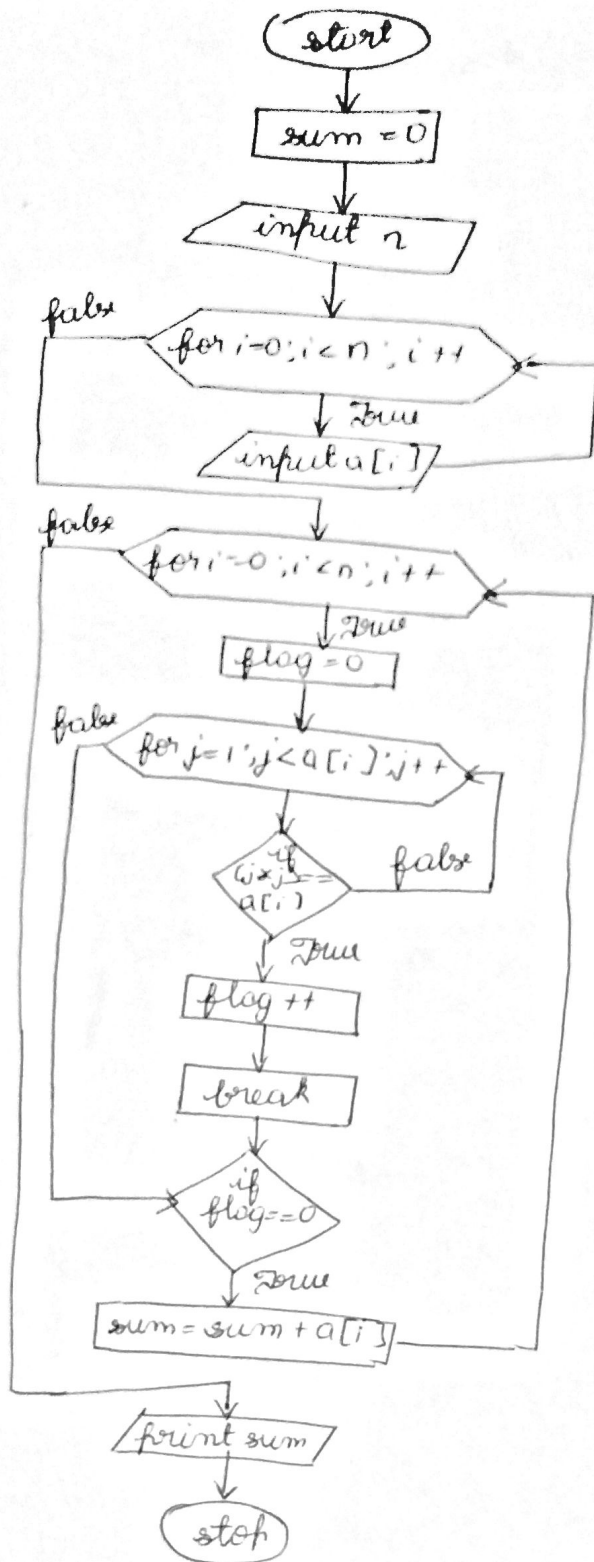 start
sum = 0
input n
false
for i=0; i<n; i++
True
input a[i]
false
for i=0; i<n; i++
True
flag = 0
false
for j=1; j<a[i]; j++
if
(j*j==
a[i])
false
True
flag ++
break
if
flag==0
True
sum = sum + a[i]
print sum
stop